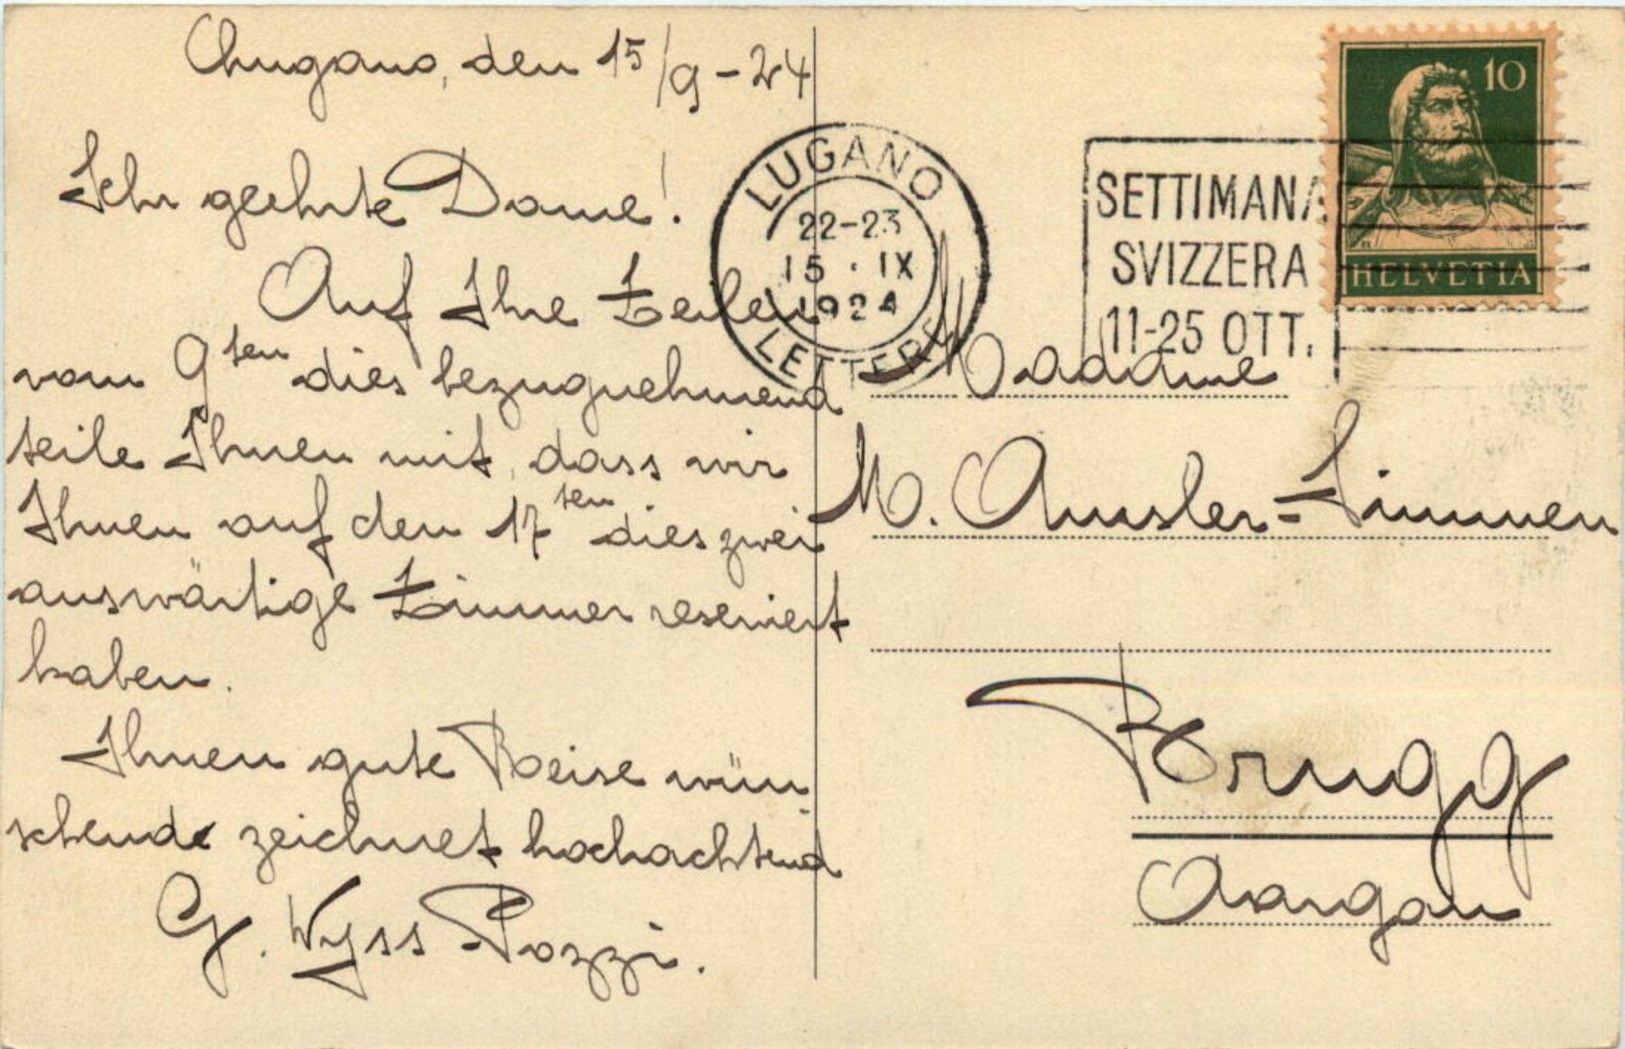 Lugano, den 15/9 - 24
Sehr geehrte Dame!
Auf Ihre Zeilen
vom 9ten dies bezugnehmend
teile Ihnen mit, dass wir
Ihnen auf den 17ten dies zwei
auswärtige Zimmer reserviert
haben.
Ihnen gute Reise wün
schend zeichnet hochachtend
G. Wyss Pozzi.
LUGANO
22-23
15. IX
1924
LETTERE
SETTIMANA
SVIZZERA
11-25 OTT.
10
HELVETIA
Madame
M. Amsler-Zimmen
Brugg
Aargau